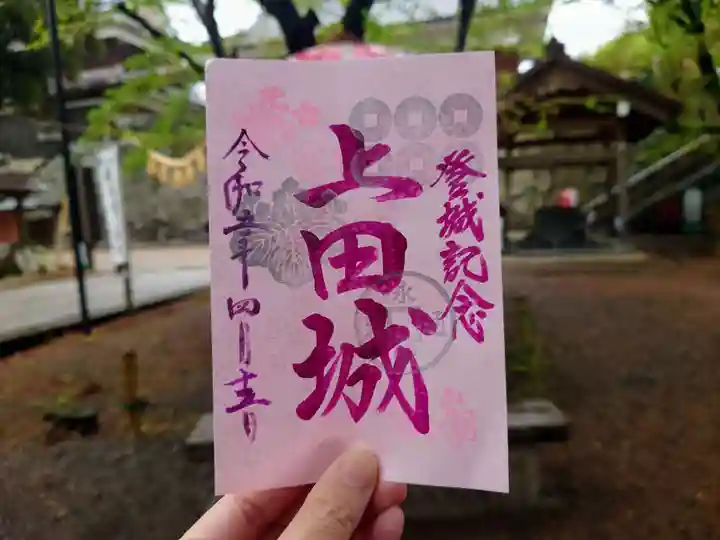 登城記念
上田城
令和六年四月十五日
永